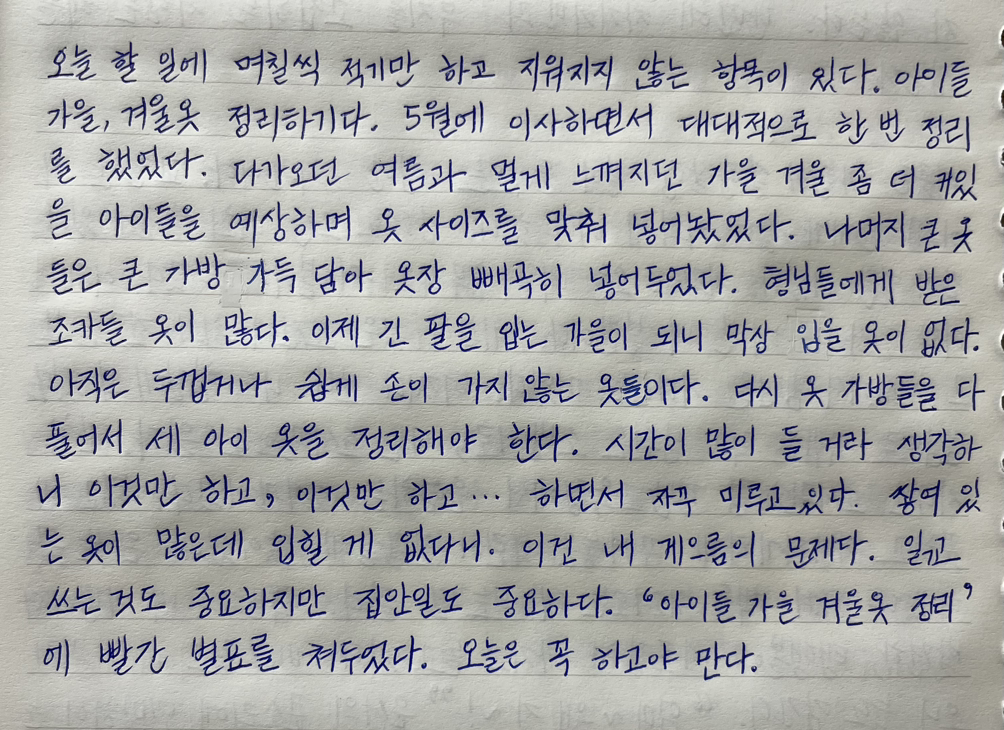 오늘 할 일에 며칠씩 적기만 하고 지워지지 않는 항목이 있다. 아이들
가을, 겨울옷 정리하기다. 5월에 이사하면서 대대적으로 한 번 정리
를 했었다. 다가오던 여름과 멀게 느껴지던 가을 겨울 좀 더 커있
을 아이들을 예상하며 옷 사이즈를 맞춰 넣어놨었다. 나머지 큰 옷
들은 큰 가방 가득 담아 옷장 빼곡히 넣어두었다. 형님들에게 받은
조카들 옷이 많다. 이제 긴 팔을 입는 가을이 되니 막상 입을 옷이 없다.
아직은 두껍거나 쉽게 손이 가지 않는 옷들이다. 다시 옷 가방들을 다
풀어서 세 아이 옷을 정리해야 한다. 시간이 많이 들 거라 생각하
니 이것만 하고, 이것만 하고... 하면서 자꾸 미루고 있다. 쌓여 있
는 옷이 많은데 입힐 게 없다니. 이건 내 게으름의 문제다. 읽고
쓰는 것도 중요하지만 집안일도 중요하다. "아이들 가을 겨울옷 정리"
에 빨간 별표를 쳐두었다. 오늘은 꼭 하고야 만다.